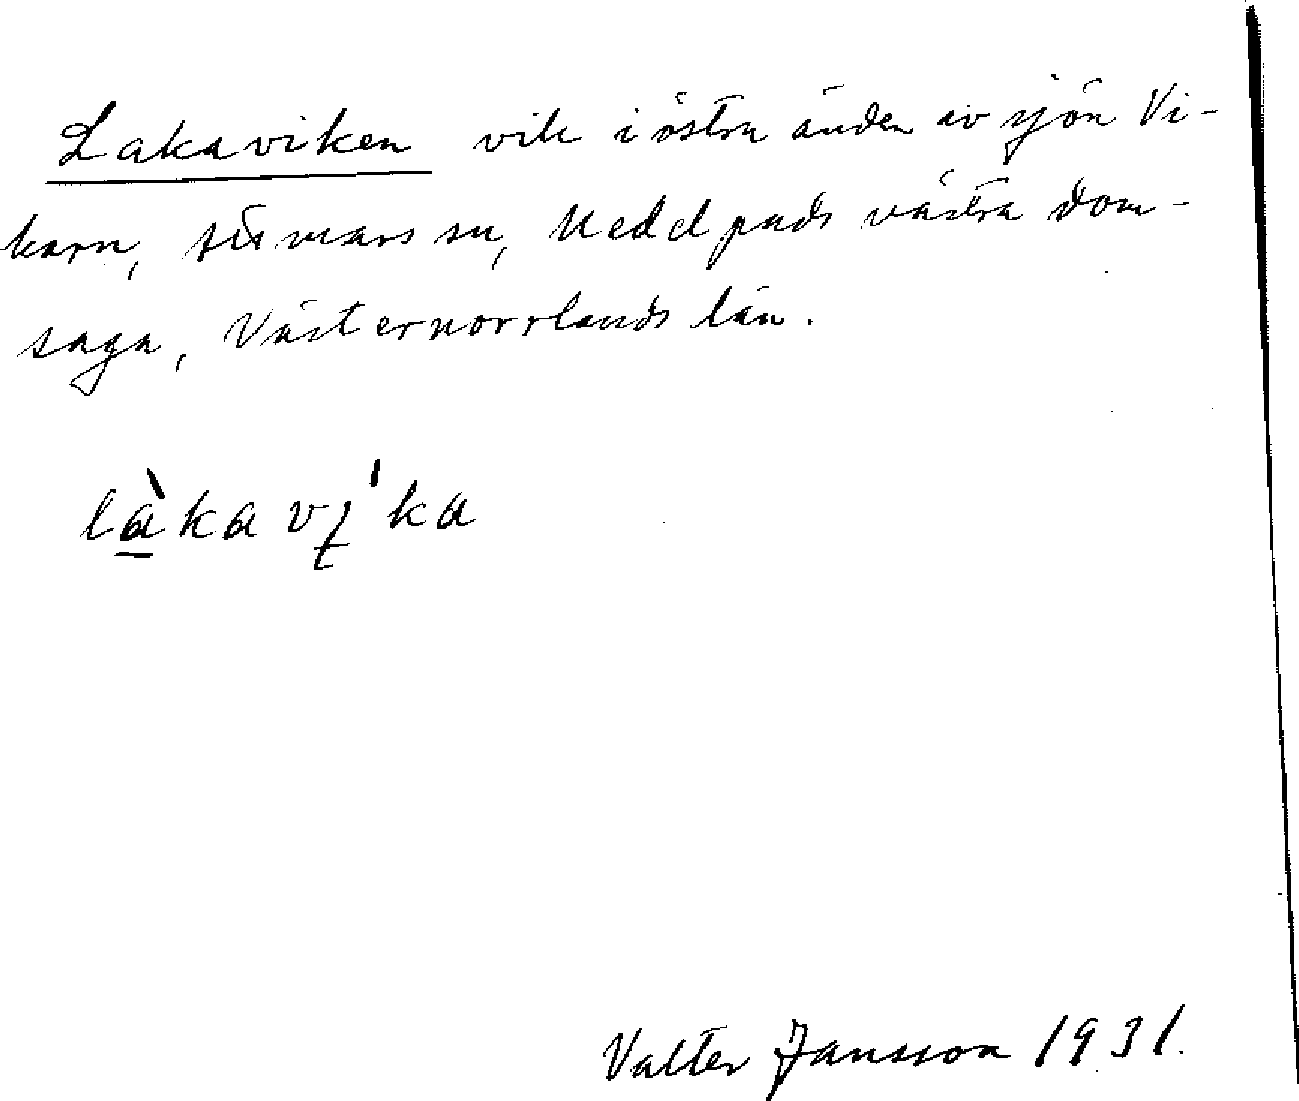 Lakaviken vik i östra änden av sjön Vi-
karn, Stömars sn, Medelpads västra dom-
saga, Västernorrlands län.
là̱kavi̖'ka
Valter Jansson 1931.